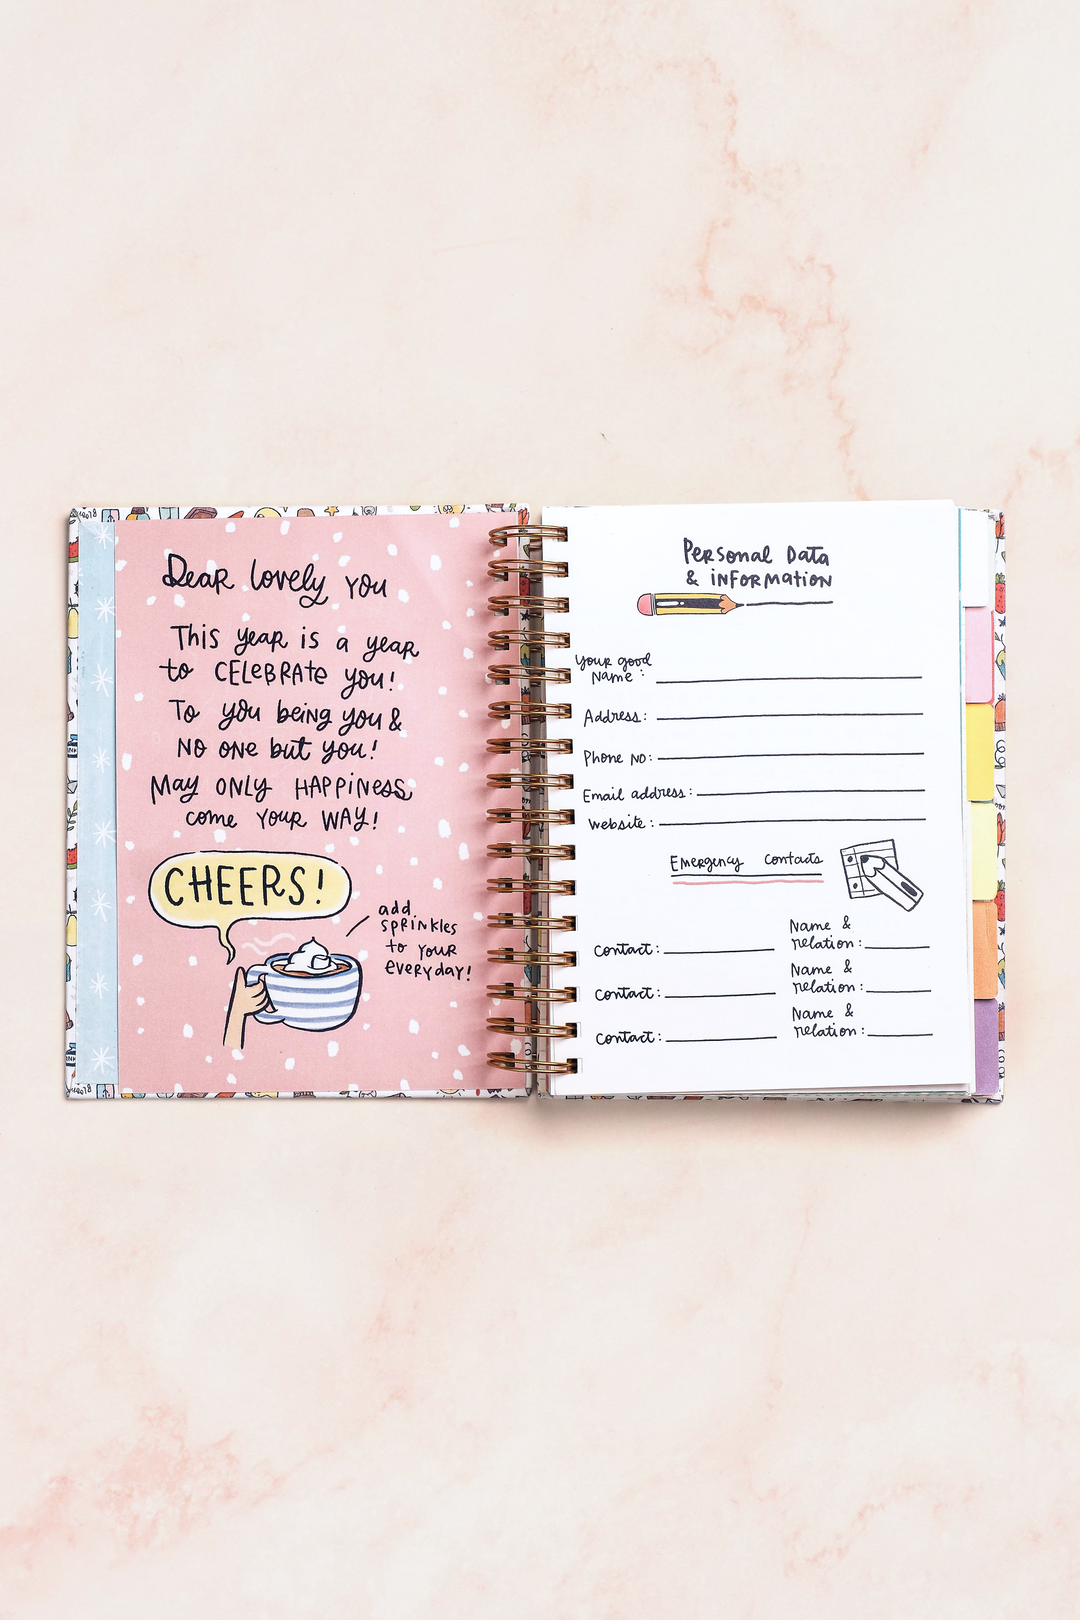 Dear lovely you
This year is a year
to CELEBRATE you!
To you being you &
NO ONE but you!
May ONLY HAPPINESS
come YOUR WAY!
CHEERS!
add
sprinkles
to your
everyday!
Personal Data
& information
Your good
Name:
Address:
Phone no:
Email address:
Website:
Emergency Contacts
Contact:
Name &
relation:
Contact:
Name &
relation:
Contact:
Name &
relation: